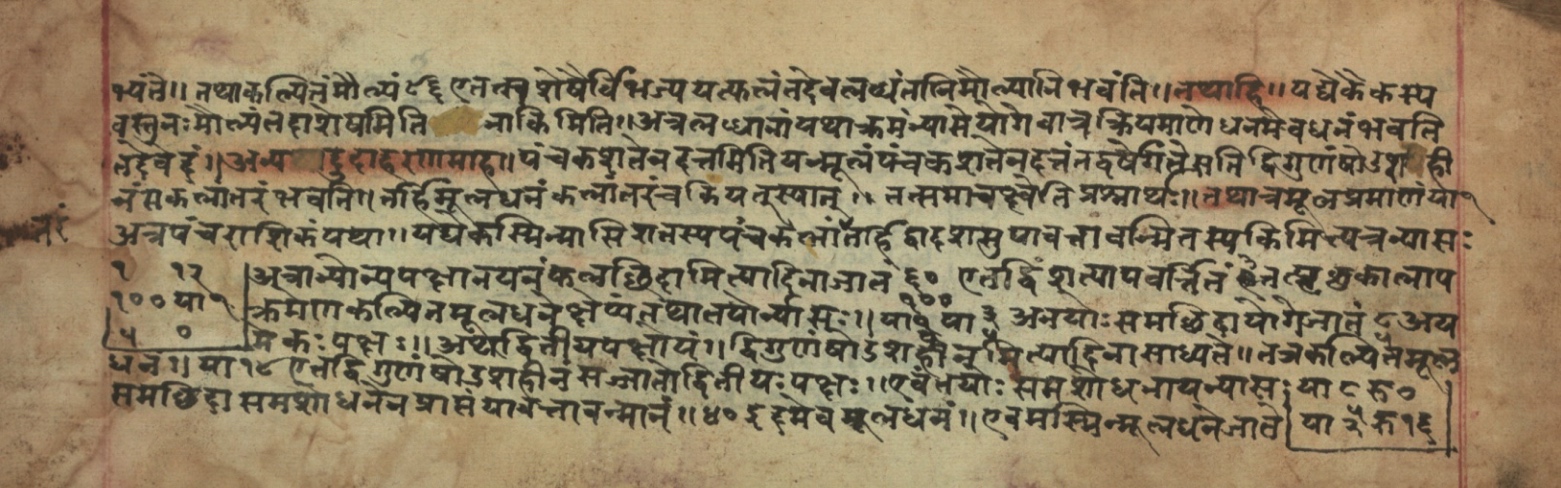 भ्यंते॥ तथाकल्पितंमौल्यं९६ एतत्स्वशेषैर्विभज्य यत्फलंतदेवलथ्यंतनिमौल्यानि भवंति॥ तथाहि॥ यद्येकैकस्य
वस्तुनःमौल्यंतदाशेषमिति नाकिमिति॥ अत्रल यथाक्रमंन्यासेयोगेवात्र क्रियमाणे धनमेवधनंभवति
तदेवेदं॥ अन्य दुदाहरणमाह॥ पंचकशतेनदत्तमिति यन्मूलंपंचकशतेनदत्तंतद्वर्षेर्गतेसति द्विगुणंषोडश ही
नंसकलांतरं भवति॥ तर्हिमूलधनंकलांतरंचकियत्स्यात्॥ तत्समाचक्ष्वेति प्रश्नार्थः॥ तथाचमूलप्रमाणंया१
अत्रपंचराशिकंयथा॥ यद्येकस्मिन्मासिशतस्यपंचकलांतर्हिद्वादशसुयावत्तावन्मितस्यकिमित्यत्रन्यासः
१ १२ अत्रान्योन्यपक्षानयनंफलछिदामित्यादिनाजातं ६० एतद्विंशत्यापवर्त्तितं कालाप
१०० या१ क्रमेणकल्पितमूलधनं तथातयोर्न्यासः॥ या१ या३ अनयोःसमछिदायोगेजातं ८ अय
५ ० मेकःपक्षः॥ अथद्वितीयपक्षोयं॥ द्विगुणंषोडशहीनमित्यादिनासाध्यते॥ तत्रकल्पितंमूल
धनं॥ या१ एतद्विगुणंषोडशहीनं सजातोद्वितीयःपक्षः॥ एवंतयोः समशोधनायन्यासः या८ रू०
समछिदा समशोधनेनप्राप्तंयावत्तावन्मानं॥ ४० इदमेवमूलधनं॥ एवमस्मिन्मूलधनेजाते या रू१६